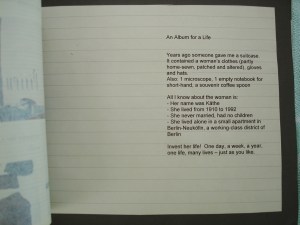 An Album for a Life
Years ago someone gave me a suitcase.
It contained a woman's clothes (partly
home-sewn, patched and altered), gloves
and hats.
Also: 1 microscope, 1 empty notebook for
short-hand, a souvenir coffee spoon
All I know about the woman is:
- Her name was Käthe
- She lived from 1910 to 1992
- She never married, had no children
- She lived alone in a small apartment in
Berlin-Neukölln, a working-class district of
Berlin
Invent her life! One day, a week, a year,
one life, many lives – just as you like.